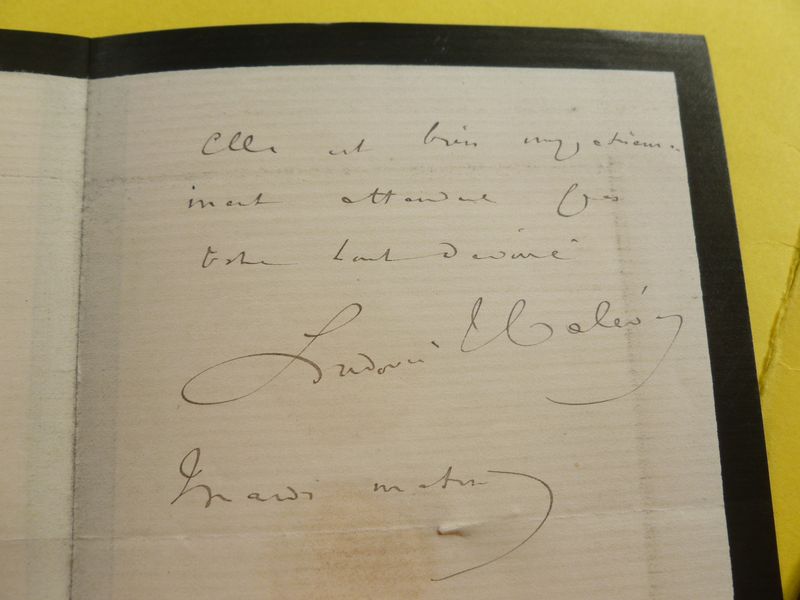 Elle est bien impatiem-
ment attendue
Votre tout dévoué
Ludovic Halévy
Mardi matin